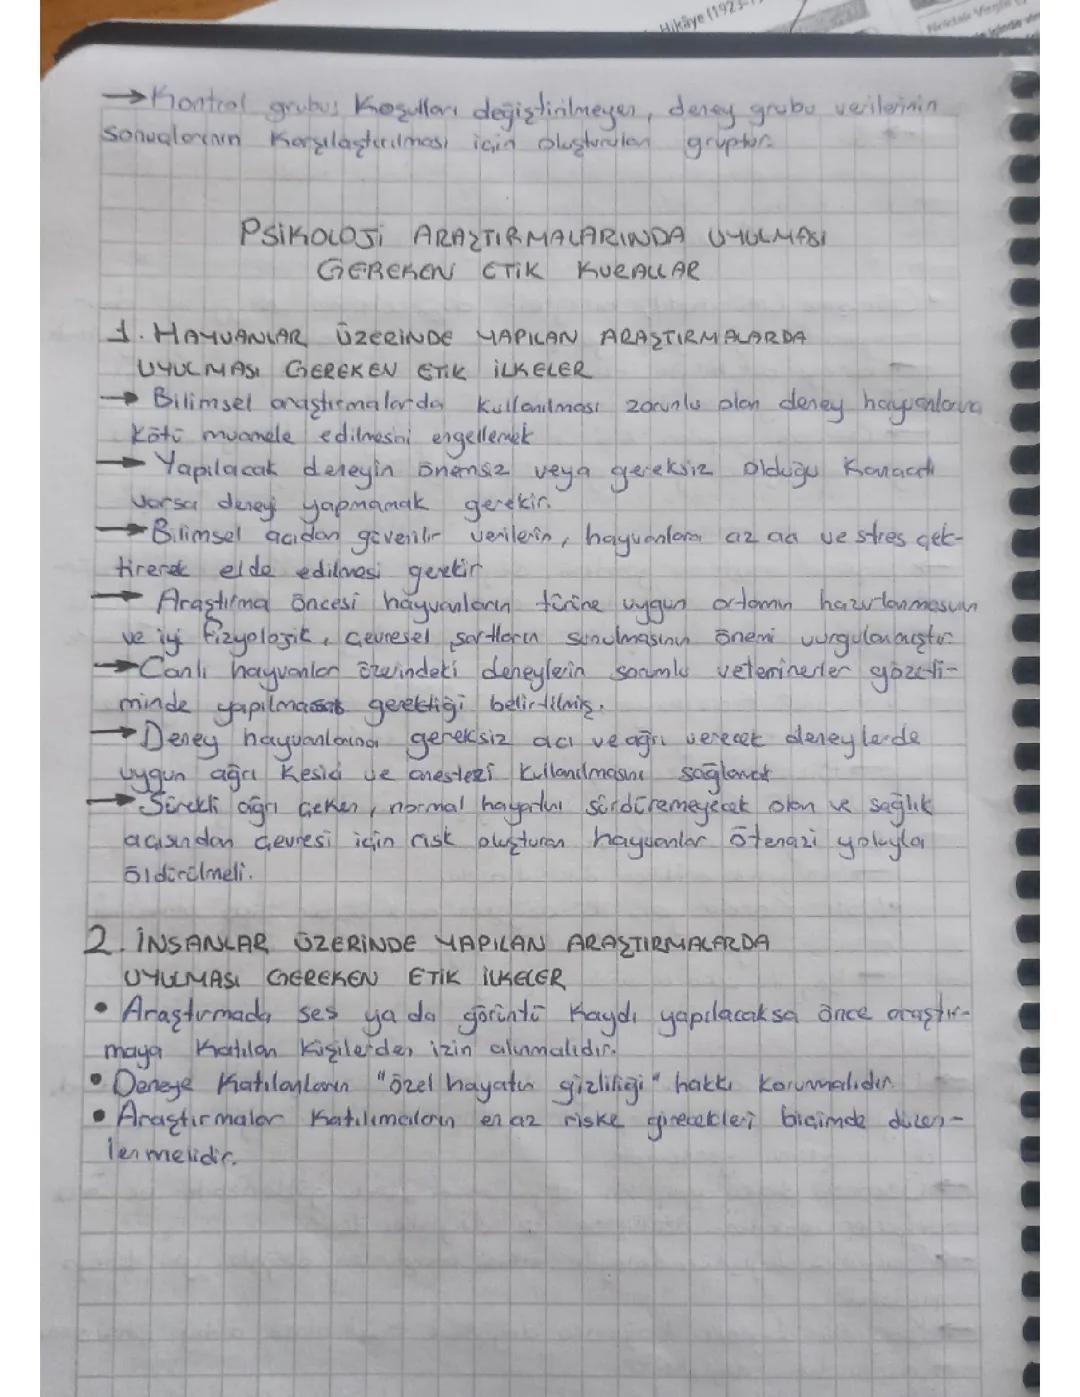 Hikâye (1923-
→Kontrol grubu; Koşulları değiştirilmeyen, deney grubu verilerinin
sonuçlarının karşılaştırılması için oluşturulan gruptur.
PSİKOLOJİ ARAŞTIRMALARINDA UYULMASI
GEREKEN ETİK KURALLAR
1. HAYVANLAR ÜZERİNDE YAPILAN ARAŞTIRMALARDA
UYULMASI GEREKEN ETİK İLKELER
→ Bilimsel araştırmalarda kullanılması zorunlu olan deney hayvanlarına
kötü muamele edilmesini engellemek
→ Yapılacak deneyin önemsiz veya gereksiz olduğu kanaati
varsa deneyi yapmamak gerekir.
→ Bilimsel açıdan güvenilir verilerin, hayvanlara az acı ve stres çek-
tirerek elde edilmesi gerekir
→ Araştırma öncesi hayvanların türüne uygun ortamın hazırlanmasının
ve iyi fizyolojik, çevresel şartların sunulmasının önemi vurgulanmıştır.
→Canlı hayvanlar üzerindeki deneylerin sorumlu veterinerler gözeti-
minde yapılması gerektiği belirtilmiş.
→Deney hayvanlarına gereksiz acı ve ağrı verecek deneylerde
uygun ağrı kesici ve anestezi kullanılmasını sağlamak
→Sürekli ağrı çeken, normal hayatını sürdüremeyecek olan ve sağlık
açısından çevresi için risk oluşturan hayvanlar ötenazi yoluyla
öldürülmeli.
2. İNSANLAR ÜZERİNDE YAPILAN ARAŞTIRMALARDA
UYULMASI GEREKEN ETİK İLKELER
• Araştırmada ses ya da görüntü kaydı yapılacaksa önce araştır-
maya katılan kişilerden izin alınmalıdır.
• Deneye katılanların "özel hayatın gizliliği" hakkı korunmalıdır
• Araştırmalar katılımcıların en az riske girecekleri biçimde düzen-
lenmelidir.